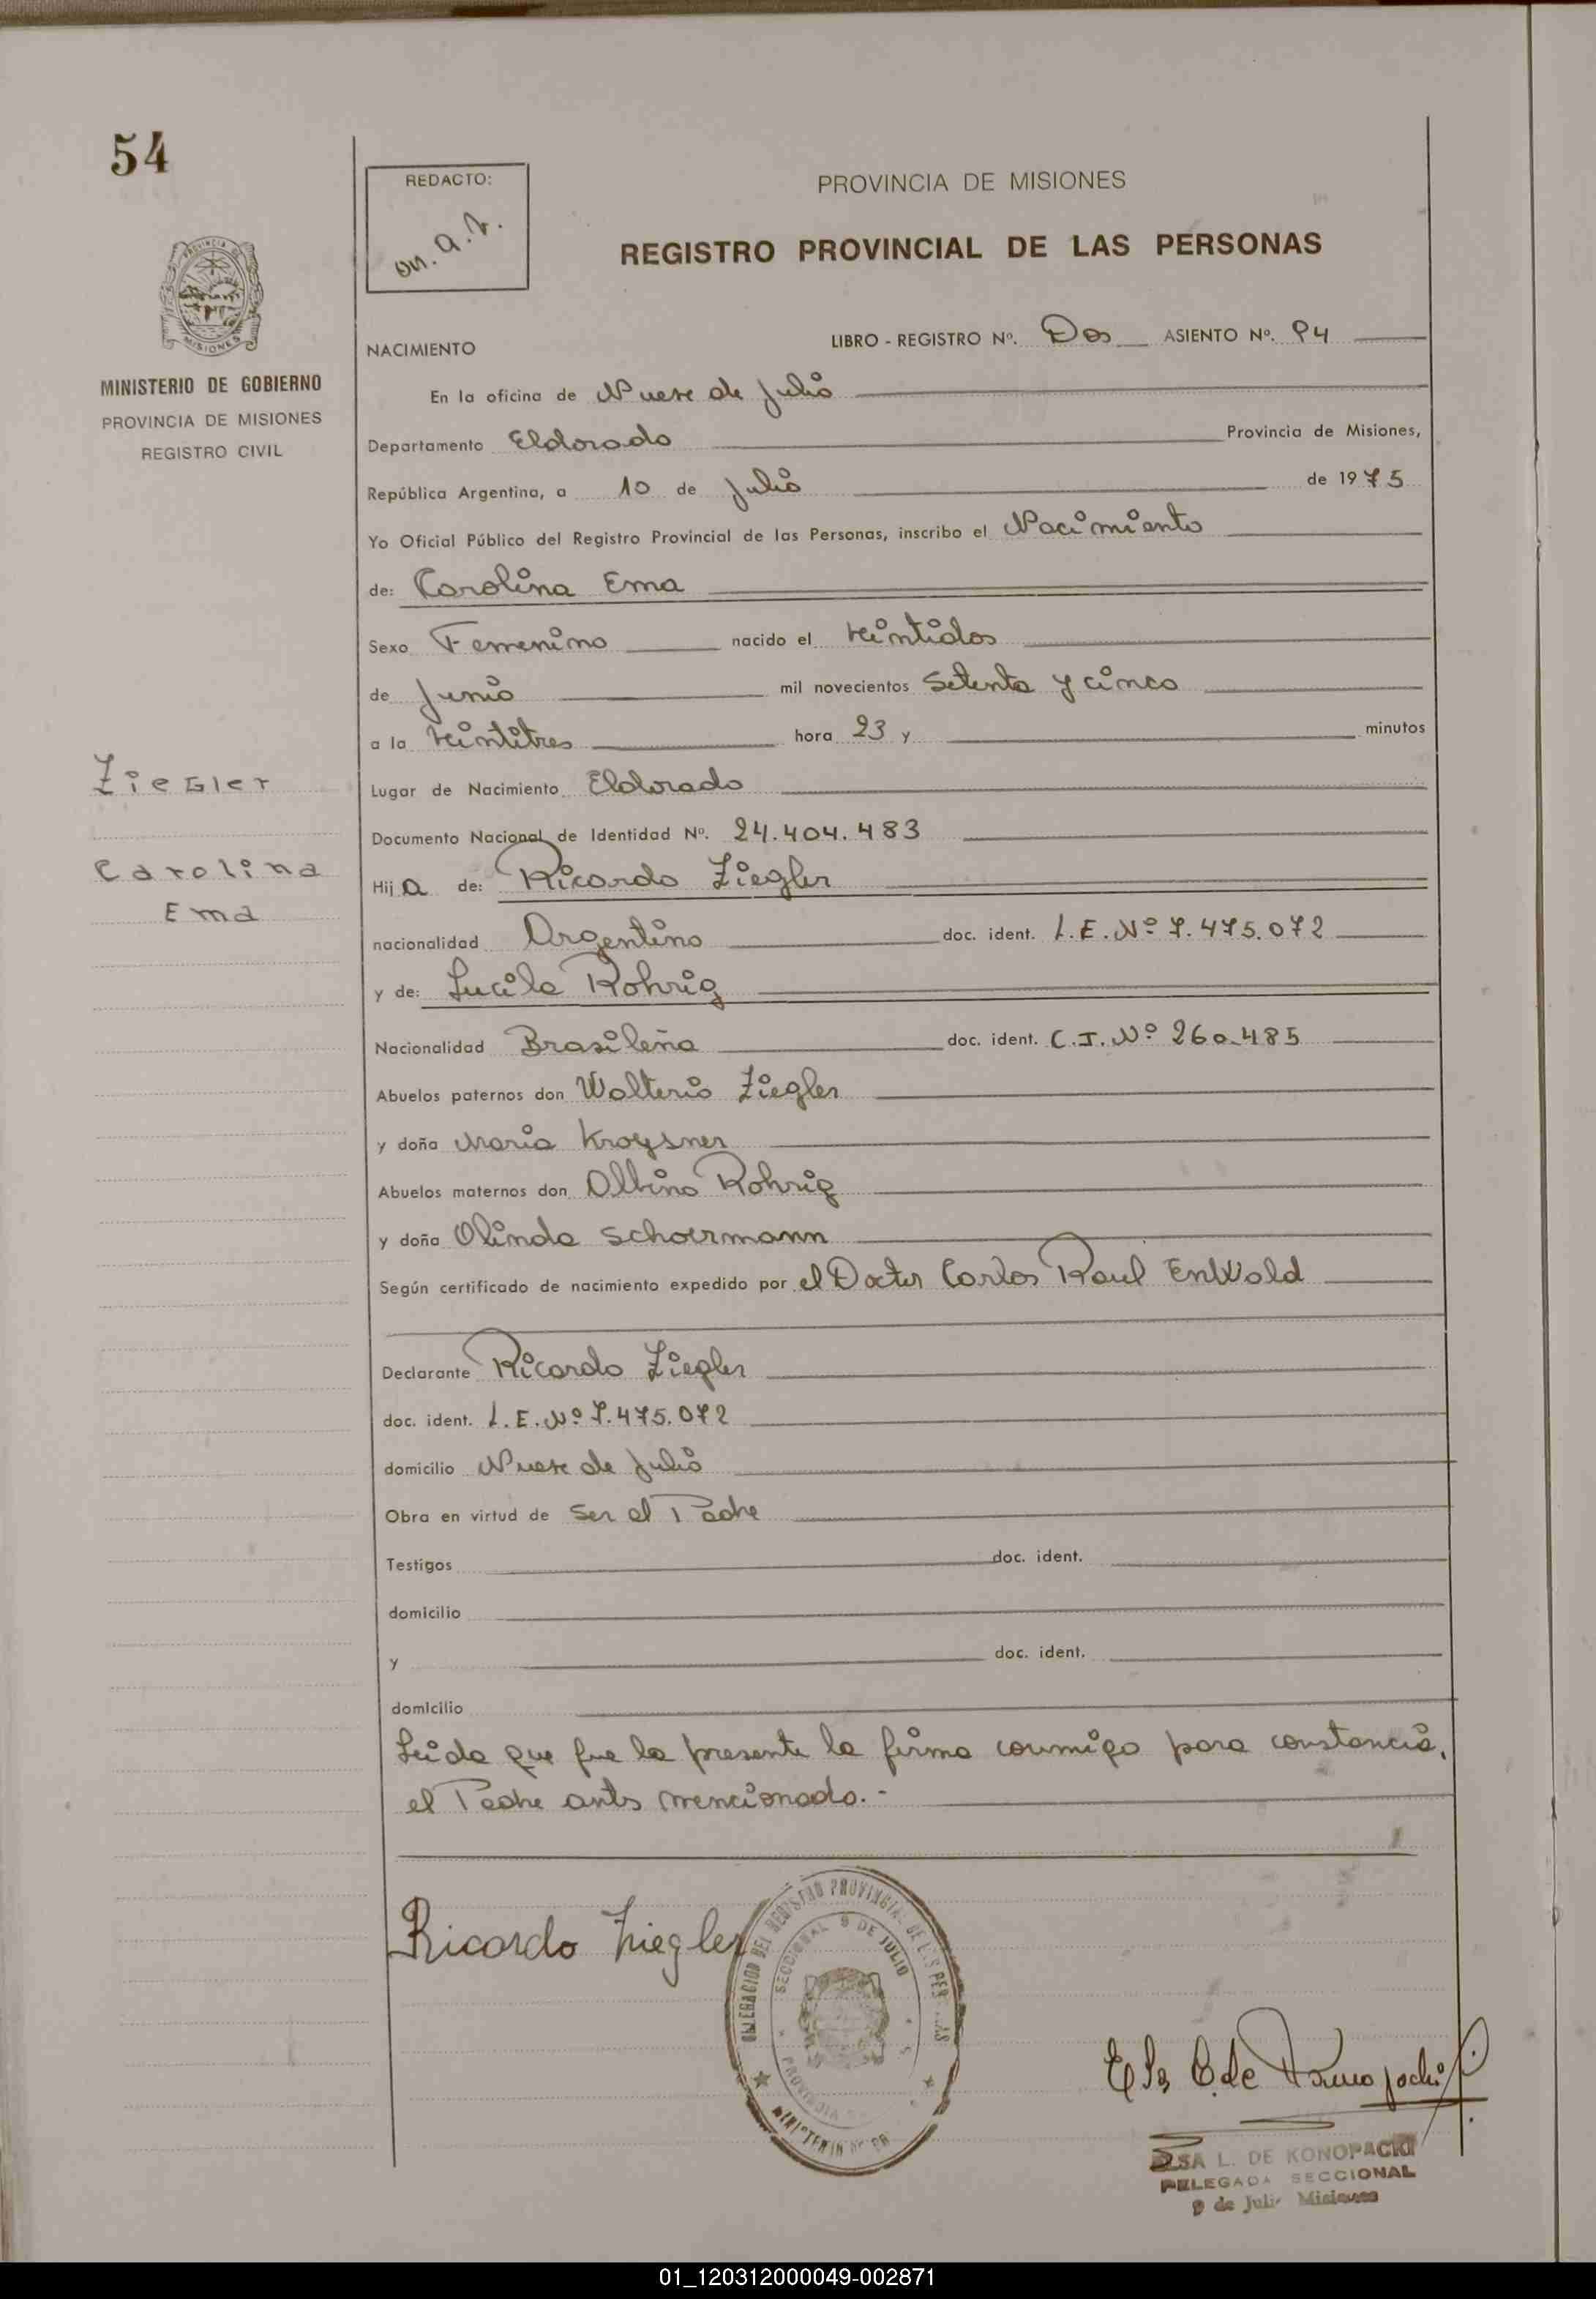 54
REDACTO:
m.a.r.
PROVINCIA DE MISIONES
REGISTRO PROVINCIAL DE LAS PERSONAS
PROVINCIA DE
MISIONES
MINISTERIO DE GOBIERNO
PROVINCIA DE MISIONES
REGISTRO CIVIL
NACIMIENTO LIBRO - REGISTRO Nº. Dos ASIENTO Nº. 94
En la oficina de Nueve de Julio
Departamento Eldorado Provincia de Misiones,
República Argentina, a 10 de Julio de 1975
Yo Oficial Público del Registro Provincial de las Personas, inscribo el Nacimiento
de: Carolina Ema
Sexo Femenino nacido el veintidos
de Junio mil novecientos Setenta y cinco
a la veintitres hora 23 y minutos
Lugar de Nacimiento Eldorado
Documento Nacional de Identidad Nº. 24.404.483
Hij a de: Ricardo Ziegler
nacionalidad Argentino doc. ident. L.E. Nº 7.475.072
y de: Lucila Rohrig
Nacionalidad Brasileña doc. ident. C.I. Nº 260.485
Abuelos paternos don Walterio Ziegler
y doña Maria Kroysner
Abuelos maternos don Albino Rohrig
y doña Olinda Schoermann
Según certificado de nacimiento expedido por el Doctor Carlos Raul EnWald
Declarante Ricardo Ziegler
doc. ident. L.E. Nº 7.475.072
domicilio Nueve de Julio
Obra en virtud de Ser el Padre
Testigos doc. ident.
domicilio
y doc. ident.
domicilio
Leida que fue la presente la firma conmigo para constancia,
el Padre antes mencionado.-
Ziegler
Carolina
Ema
Ricardo Ziegler
DEL REGISTRO PROVINCIAL DE LAS
SECCIONAL 9 DE JULIO
PROVINCIA
MINISTERIO DE
ELSA L. DE KONOPACKI
DELEGADA SECCIONAL
9 de Julio Misiones
01_120312000049-002871